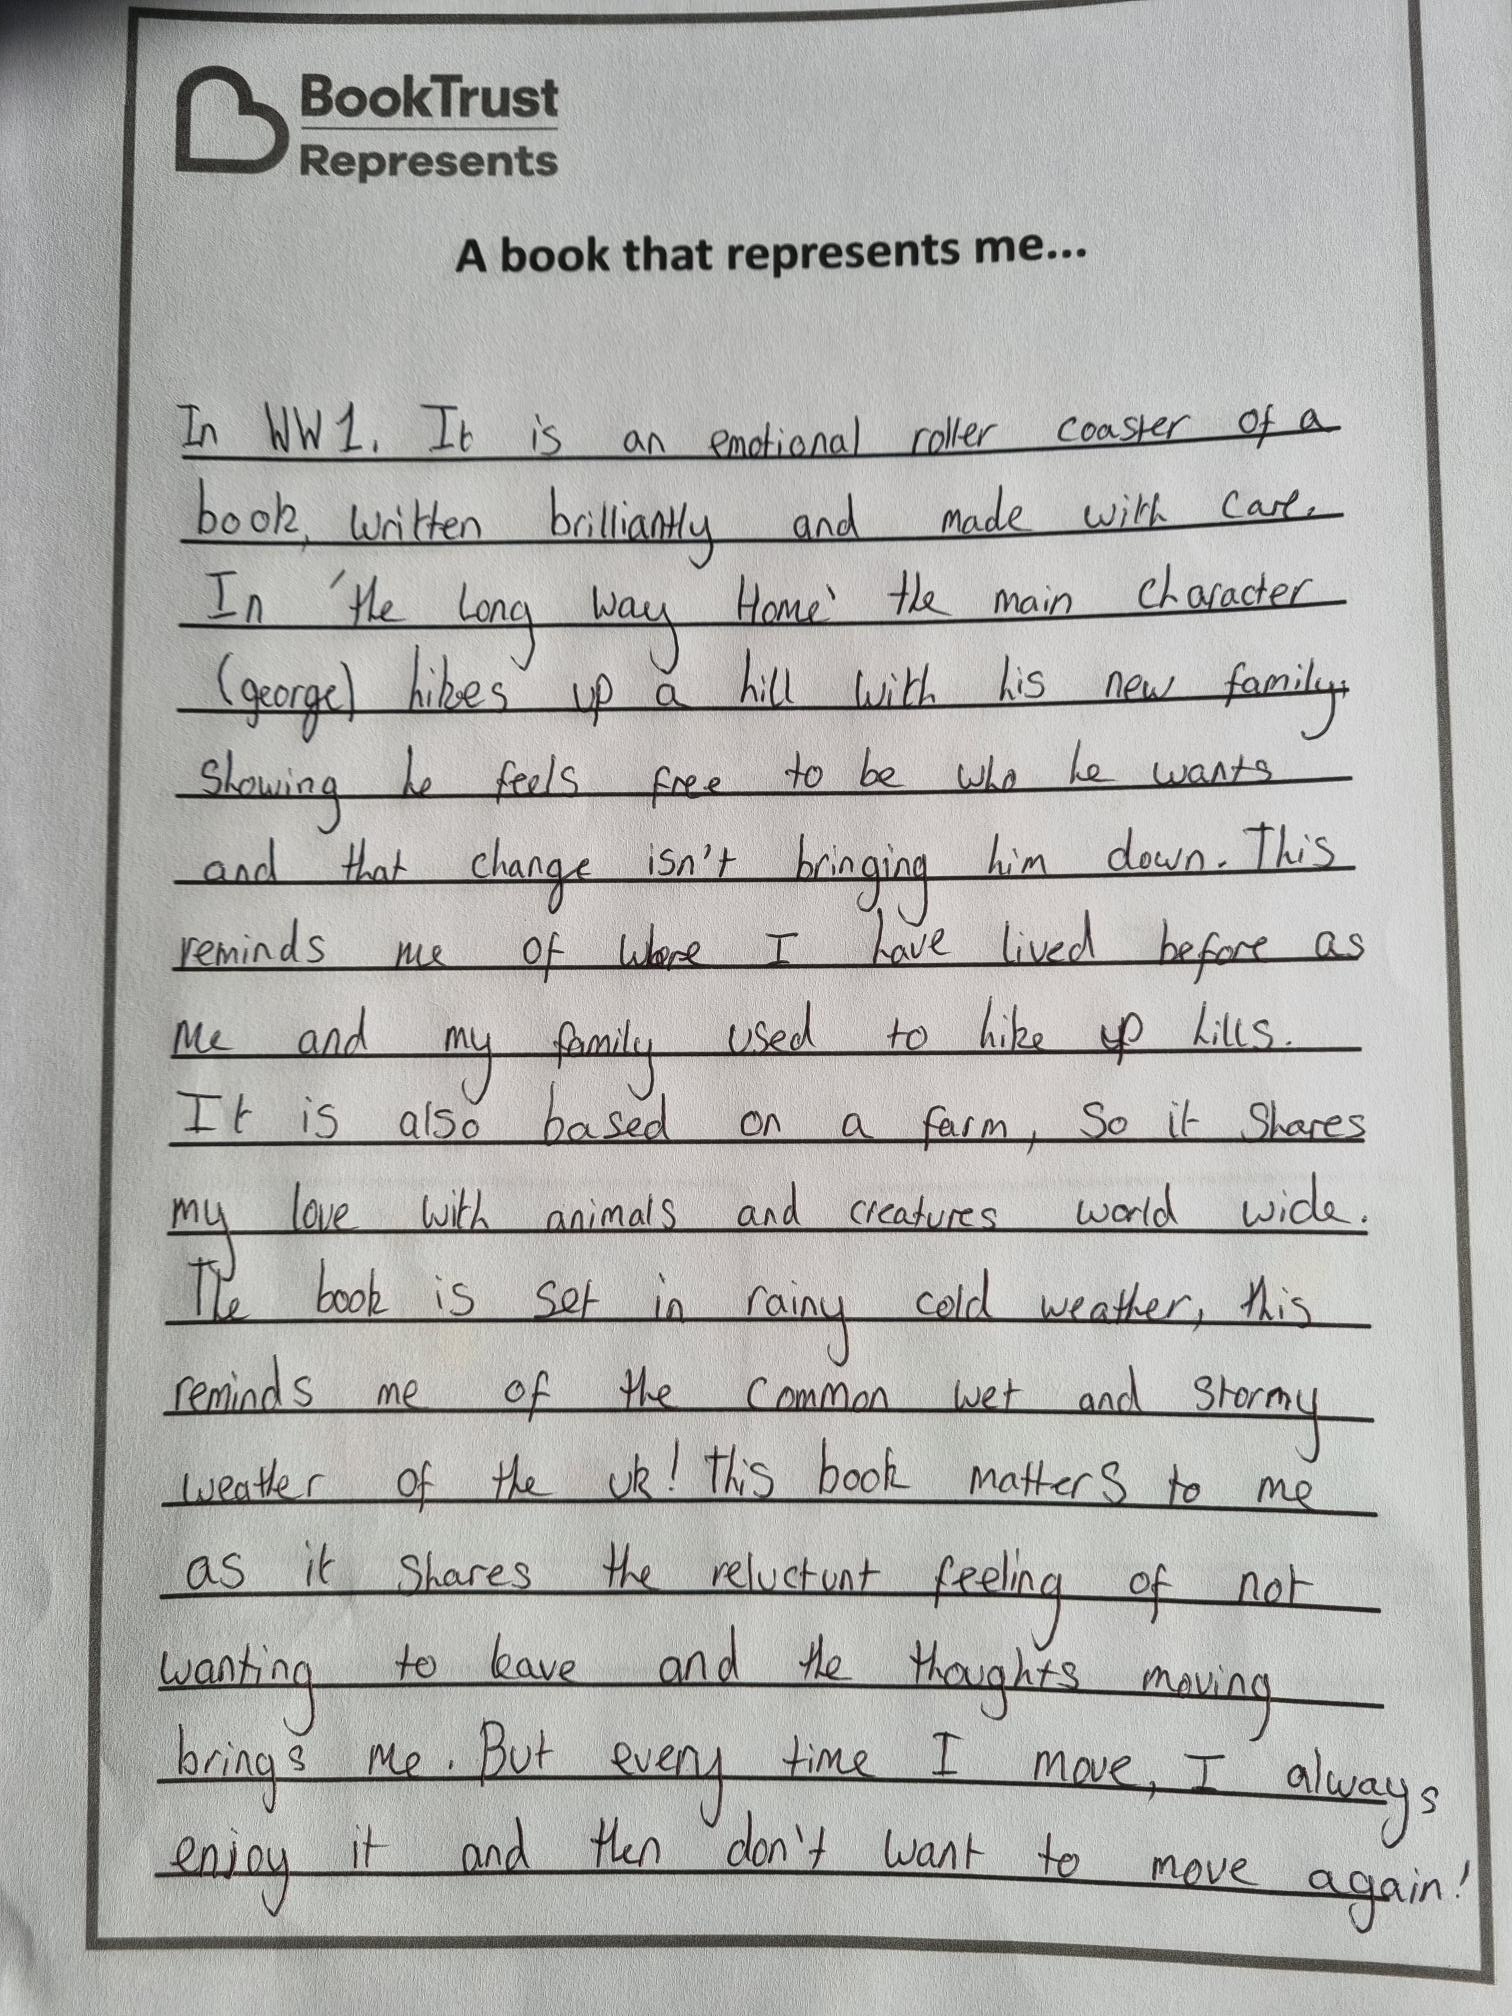 BookTrust
Represents
A book that represents me...
In WW1. It is an emotional roller coaster of a
book, written brilliantly and made with care.
In 'the Long Way Home' the main character
(george) hikes up a hill with his new family,
Showing he feels free to be who he wants
and that change isn't bringing him down. This
reminds me of where I have lived before as
me and my family used to hike up hills.
It is also based on a farm, So it Shares
my love with animals and creatures world wide.
The book is set in rainy cold weather, this
reminds me of the common wet and stormy
weather of the uk! This book matters to me
as it shares the reluctunt feeling of not
wanting to leave and the thoughts moving
brings me. But every time I move, I always
enjoy it and then don't want to move again!